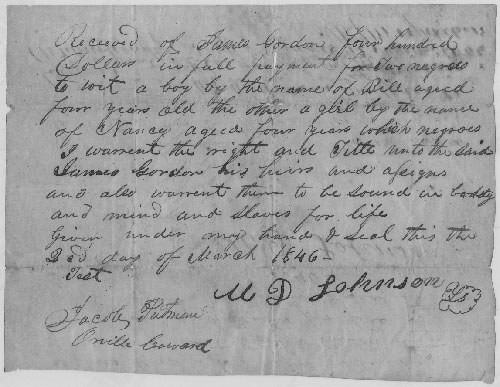 Received of James Gordon four hundred
Dollars in full payment for two negroes
to wit a boy by the name of Bill aged
four years old the other a girl by the name
of Nancy aged four years which negroes
I warrent the right and Title unto the said
James Gordon his heirs and asigns
and also warrent them to be sound in boddy
and mind and slaves for life
Given under my hand & seal this the
23d day of March 1846
Test
M D Johnson
Jacob Putman
Orville Howard